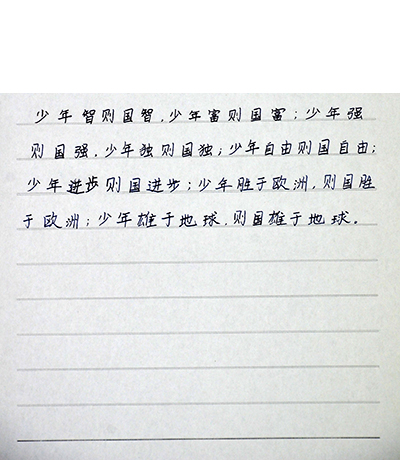 少年智则国智,少年富则国富;少年强
则国强,少年独则国独;少年自由则国自由;
少年进步则国进步;少年胜于欧洲,则国胜
于欧洲;少年雄于地球,则国雄于地球。